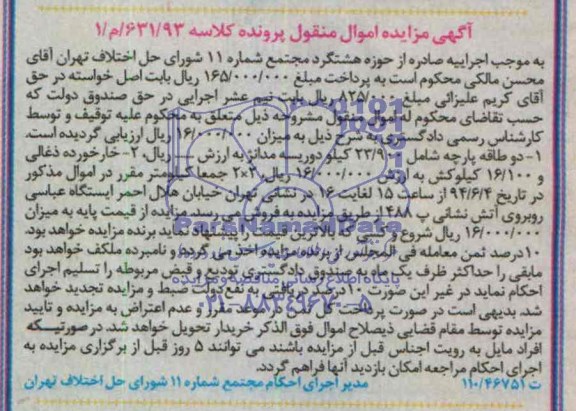 آگهی مزایده اموال منقول پرونده کلاسه ۱/م/۶۳۱/۹۳
به موجب اجراییه صادره از حوزه هشتگرد مجتمع شماره ۱۱ شورای حل اختلاف تهران آقای
محسن مالکی محکوم است به پرداخت مبلغ ۱۶۵/۰۰۰/۰۰۰ ریال بابت اصل خواسته در حق
آقای کریم علیزائی مبلغ ۸۲۵/۰۰۰ ریال بابت نیم عشر اجرایی در حق صندوق دولت که
حسب تقاضای محکوم له اموال منقول مشروحه ذیل متعلق به محکوم علیه توقیف و توسط
کارشناس رسمی دادگستری به شرح ذیل به میزان ۱۶/۰۰۰/۰۰۰ ریال ارزیابی گردیده است.
۱- دو طاقه پارچه شامل ۲۳/۹۰۰ کیلو دوریسه مدانژ به ارزش ریال، ۲- خارخورده ذغالی
و ۱۶/۱۰۰ کیلوکش به ارزش ۱۶/۰۰۰/۰۰۰ ریال، ۲×۲ جمعا کیلومتر مقرر در اموال مذکور
در تاریخ ۹۴/۶/۴ از ساعت ۱۵ لغایت ۱۶ در نشانی تهران خیابان هلال احمر ایستگاه عباسی
روبروی آتش نشانی پ ۴۸۸ از طریق مزایده به فروش می رسد. مزایده از قیمت پایه به میزان
۱۶/۰۰۰/۰۰۰ ریال شروع و کسی که بالاترین قیمت را پیشنهاد نماید برنده مزایده خواهد بود.
۱۰ درصد ثمن معامله فی المجلس از برنده مزایده اخذ می گردد و نامبرده مکلف خواهد بود
مابقی را حداکثر ظرف یک ماه به صندوق دادگستری تودیع و قبض مربوطه را تسلیم اجرای
احکام نماید در غیر این صورت ۱۰ درصد دریافتی به نفع دولت ضبط و مزایده تجدید خواهد
شد. بدیهی است در صورت پرداخت کل ثمن در موعد مقرر و عدم اعتراض به مزایده و تایید
مزایده توسط مقام قضایی ذیصلاح اموال فوق الذکر به خریدار تحویل خواهد شد. در صورتیکه
افراد مایل به رویت اجناس قبل از مزایده باشند می توانند ۵ روز قبل از برگزاری مزایده به
اجرای احکام مراجعه امکان بازدید آنها فراهم گردد.
ت ۱۱۰/۴۶۷۵۱ مدیر اجرای احکام مجتمع شماره ۱۱ شورای حل اختلاف تهران
ParsNamadData
پایگاه اطلاع رسانی مناقصه و مزایده
۰۲۱-۸۸۳۴۹۶۷۰-۵